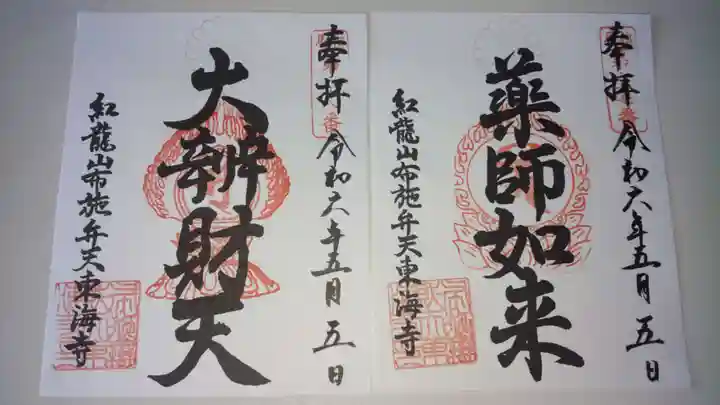 奉拝
令和六年五月五日
薬師如来
紅龍山布施弁天東海寺
奉拝
令和六年五月五日
大辨財天
紅龍山布施弁天東海寺